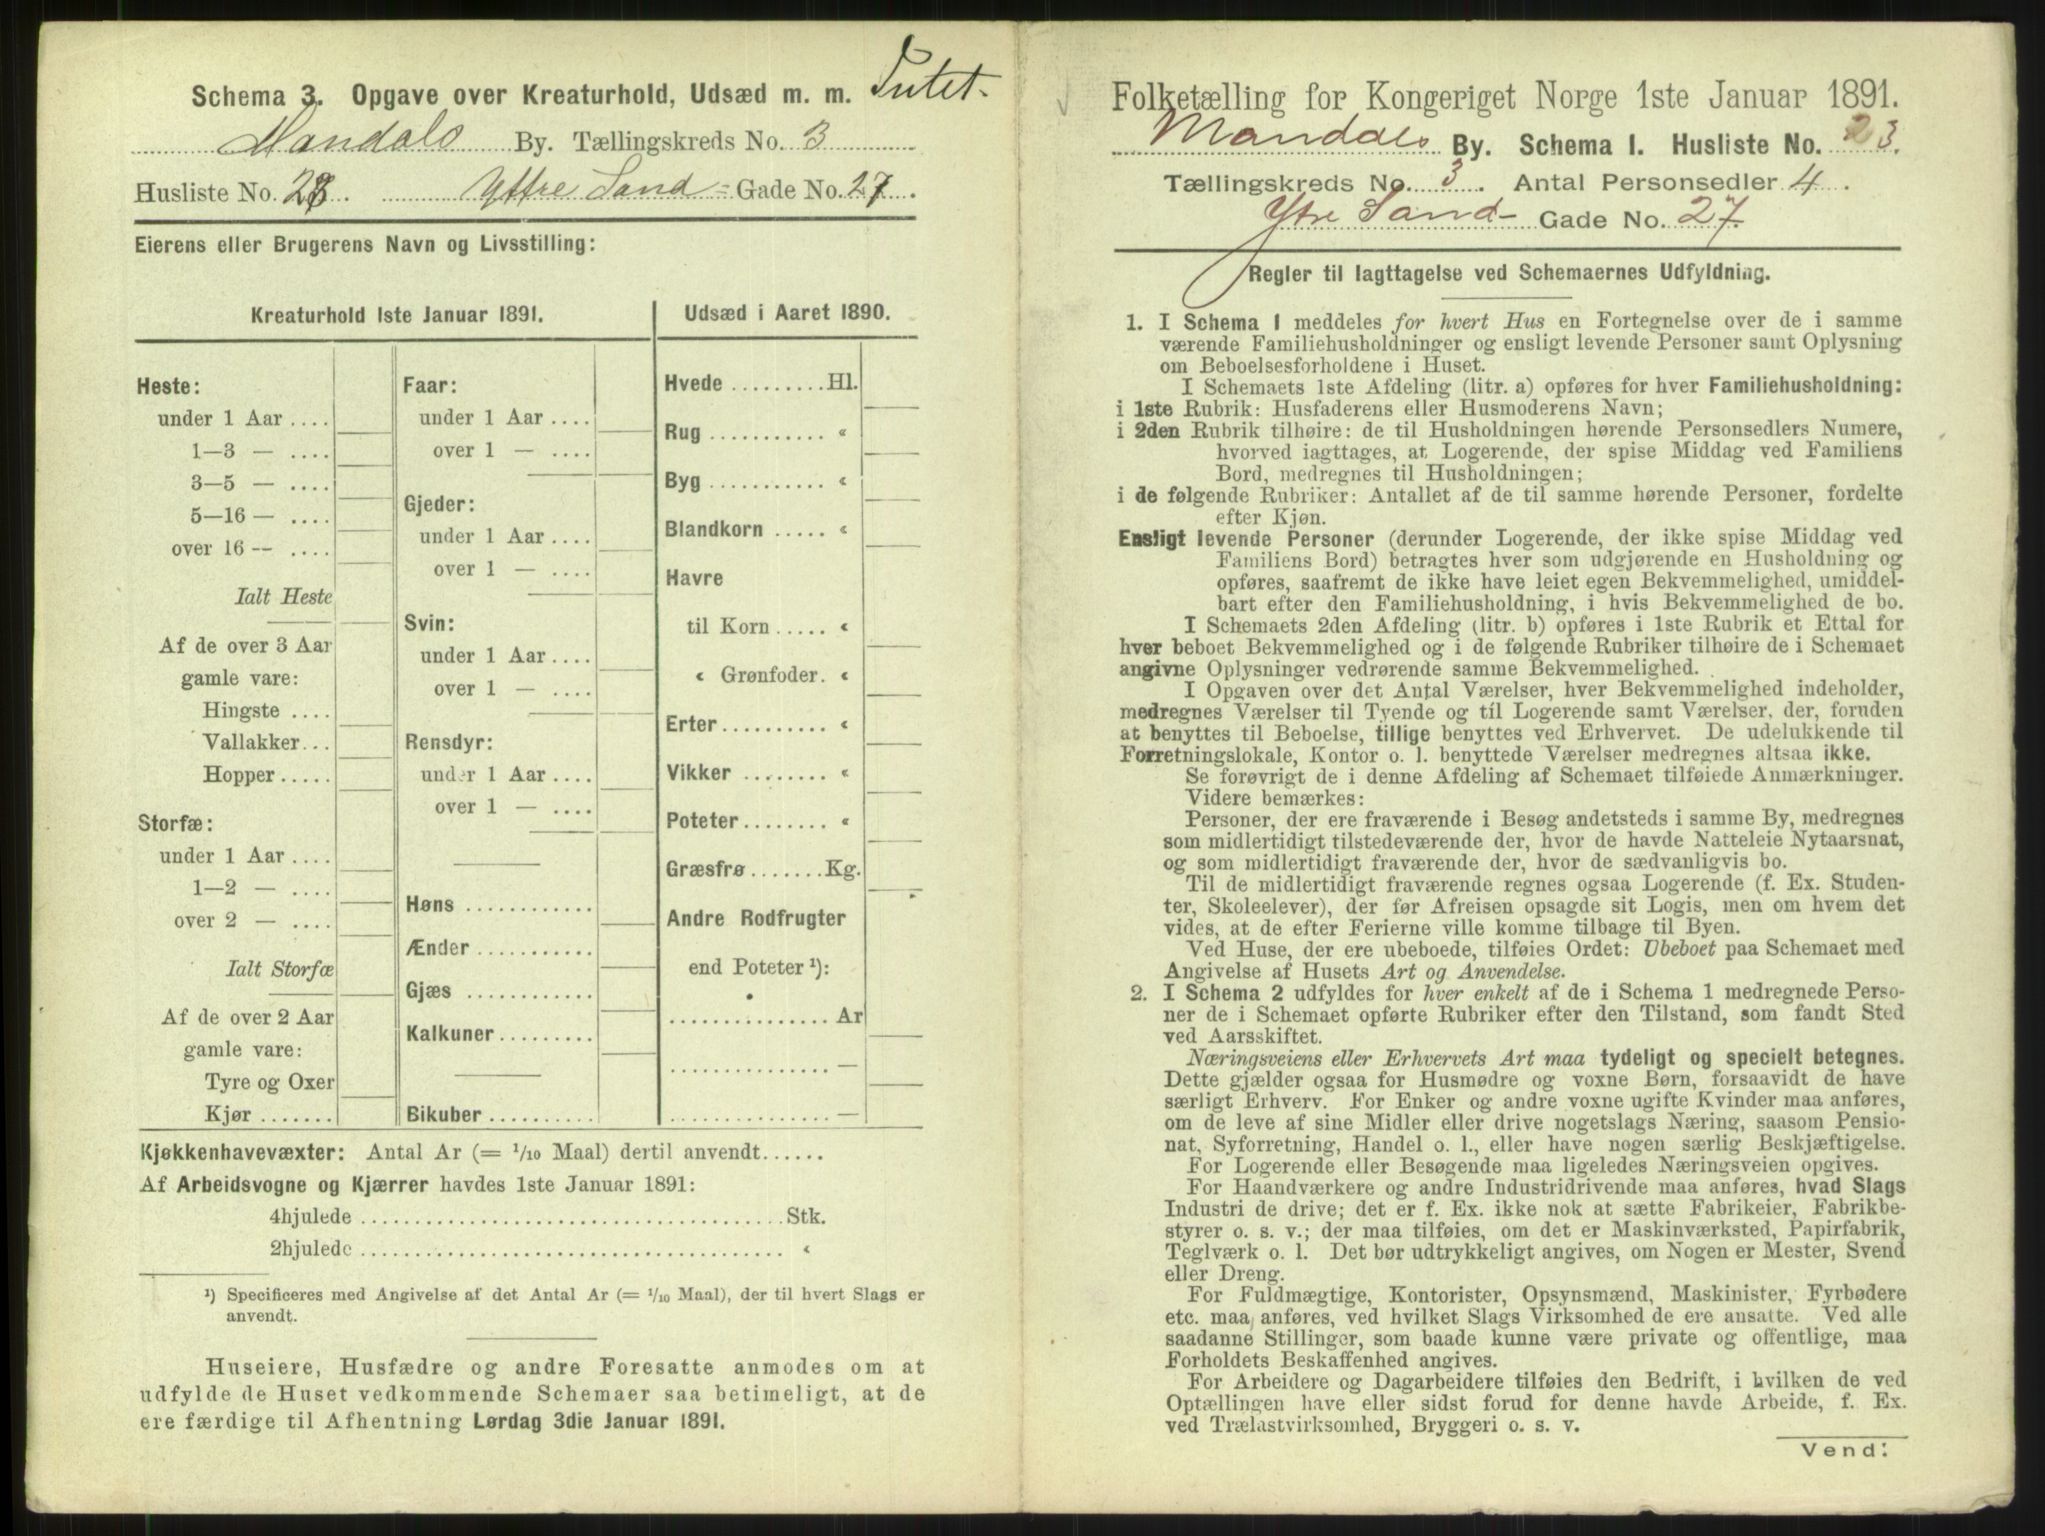 Schema 3. Opgave over Kreaturhold, Udsæd m. m. Intet.
Mandals By. Tællingskreds No. 3
Husliste No. 23. Yttre Sand = Gade No. 27.
Eierens eller Brugerens Navn og Livsstilling:
Kreaturhold 1ste Januar 1891.
Heste:
under 1 Aar ....
1—3 — ....
3—5 — ....
5—16 — ....
over 16 — ....
Ialt Heste
Af de over 3 Aar
gamle vare:
Hingste ....
Vallakker...
Hopper.....
Storfæ:
under 1 Aar ....
1—2 — ....
over 2 — ....
Ialt Storfæ
Af de over 2 Aar
gamle vare:
Tyre og Oxer
Kjør .......
Faar:
under 1 Aar ....
over 1 — ....
Gjeder:
under 1 Aar ....
over 1 — ....
Svin:
under 1 Aar ....
over 1 — ....
Rensdyr:
under 1 Aar ....
over 1 — ....
Høns ............
Ænder ...........
Gjæs ............
Kalkuner .........
Bikuber ..........
Udsæd i Aaret 1890.
Hvede .........Hl.
Rug ........... «
Byg ........... «
Blandkorn ..... «
Havre
til Korn ..... «
« Grønfoder. «
Erter .......... «
Vikker ........ «
Poteter ........ «
Græsfrø .......Kg.
Andre Rodfrugter
end Poteter ¹):
............... Ar
............... —
............... —
Kjøkkenhavevæxter: Antal Ar (= 1/10 Maal) dertil anvendt......
Af Arbeidsvogne og Kjærrer havdes 1ste Januar 1891:
4hjulede ....................................... Stk.
2hjulede ....................................... «
¹) Specificeres med Angivelse af det Antal Ar (= 1/10 Maal), der til hvert Slags er
anvendt.
Huseiere, Husfædre og andre Foresatte anmodes om at
udfylde de Huset vedkommende Schemaer saa betimeligt, at de
ere færdige til Afhentning Lørdag 3die Januar 1891.
Folketælling for Kongeriget Norge 1ste Januar 1891.
Mandals By. Schema I. Husliste No. 23.
Tællingskreds No. 3. Antal Personsedler 4.
Ytre Sand- Gade No. 27.
Regler til Iagttagelse ved Schemaernes Udfyldning.
1. I Schema I meddeles for hvert Hus en Fortegnelse over de i samme
værende Familiehusholdninger og ensligt levende Personer samt Oplysning
om Beboelsesforholdene i Huset.
I Schemaets 1ste Afdeling (litr. a) opføres for hver Familiehusholdning:
i 1ste Rubrik: Husfaderens eller Husmoderens Navn;
i 2den Rubrik tilhøire: de til Husholdningen hørende Personsedlers Numere,
hvorved iagttages, at Logerende, der spise Middag ved Familiens
Bord, medregnes til Husholdningen;
i de følgende Rubriker: Antallet af de til samme hørende Personer, fordelte
efter Kjøn.
Ensligt levende Personer (derunder Logerende, der ikke spise Middag ved
Familiens Bord) betragtes hver som udgjørende en Husholdning og
opføres, saafremt de ikke have leiet egen Bekvemmelighed, umiddel-
bart efter den Familiehusholdning, i hvis Bekvemmelighed de bo.
I Schemaets 2den Afdeling (litr. b) opføres i 1ste Rubrik et Ettal for
hver beboet Bekvemmelighed og i de følgende Rubriker tilhøire de i Schemaet
angivne Oplysninger vedrørende samme Bekvemmelighed.
I Opgaven over det Antal Værelser, hver Bekvemmelighed indeholder,
medregnes Værelser til Tyende og til Logerende samt Værelser, der, foruden
at benyttes til Beboelse, tillige benyttes ved Erhvervet. De udelukkende til
Forretningslokale, Kontor o. l. benyttede Værelser medregnes altsaa ikke.
Se forøvrigt de i denne Afdeling af Schemaet tilføiede Anmærkninger.
Videre bemærkes:
Personer, der ere fraværende i Besøg andetsteds i samme By, medregnes
som midlertidigt tilstedeværende der, hvor de havde Natteleie Nytaarsnat,
og som midlertidigt fraværende der, hvor de sædvanligvis bo.
Til de midlertidigt fraværende regnes ogsaa Logerende (f. Ex. Studen-
ter, Skoleelever), der før Afreisen opsagde sit Logis, men om hvem det
vides, at de efter Ferierne ville komme tilbage til Byen.
Ved Huse, der ere ubeboede, tilføies Ordet: Ubeboet paa Schemaet med
Angivelse af Husets Art og Anvendelse.
2. I Schema 2 udfyldes for hver enkelt af de i Schema 1 medregnede Perso-
ner de i Schemaet opførte Rubriker efter den Tilstand, som fandt Sted
ved Aarsskiftet.
Næringsveiens eller Erhvervets Art maa tydeligt og specielt betegnes.
Dette gjælder ogsaa for Husmødre og voxne Børn, forsaavidt de have
særligt Erhverv. For Enker og andre voxne ugifte Kvinder maa anføres,
om de leve af sine Midler eller drive nogetslags Næring, saasom Pensio-
nat, Syforretning, Handel o. l., eller have nogen særlig Beskjæftigelse.
For Logerende eller Besøgende maa ligeledes Næringsveien opgives.
For Haandværkere og andre Industridrivende maa anføres, hvad Slags
Industri de drive; det er f. Ex. ikke nok at sætte Fabrikeier, Fabrikbe-
styrer o. s. v.; der maa tilføies, om det er Maskinværksted, Papirfabrik,
Teglværk o. l. Det bør udtrykkeligt angives, om Nogen er Mester, Svend
eller Dreng.
For Fuldmægtige, Kontorister, Opsynsmænd, Maskinister, Fyrbødere
etc. maa anføres, ved hvilket Slags Virksomhed de ere ansatte. Ved alle
saadanne Stillinger, som baade kunne være private og offentlige, maa
Forholdets Beskaffenhed angives.
For Arbeidere og Dagarbeidere tilføies den Bedrift, i hvilken de ved
Optællingen have eller sidst forud for denne havde Arbeide, f. Ex.
ved Trælastvirksomhed, Bryggeri o. s. v.
Vend: